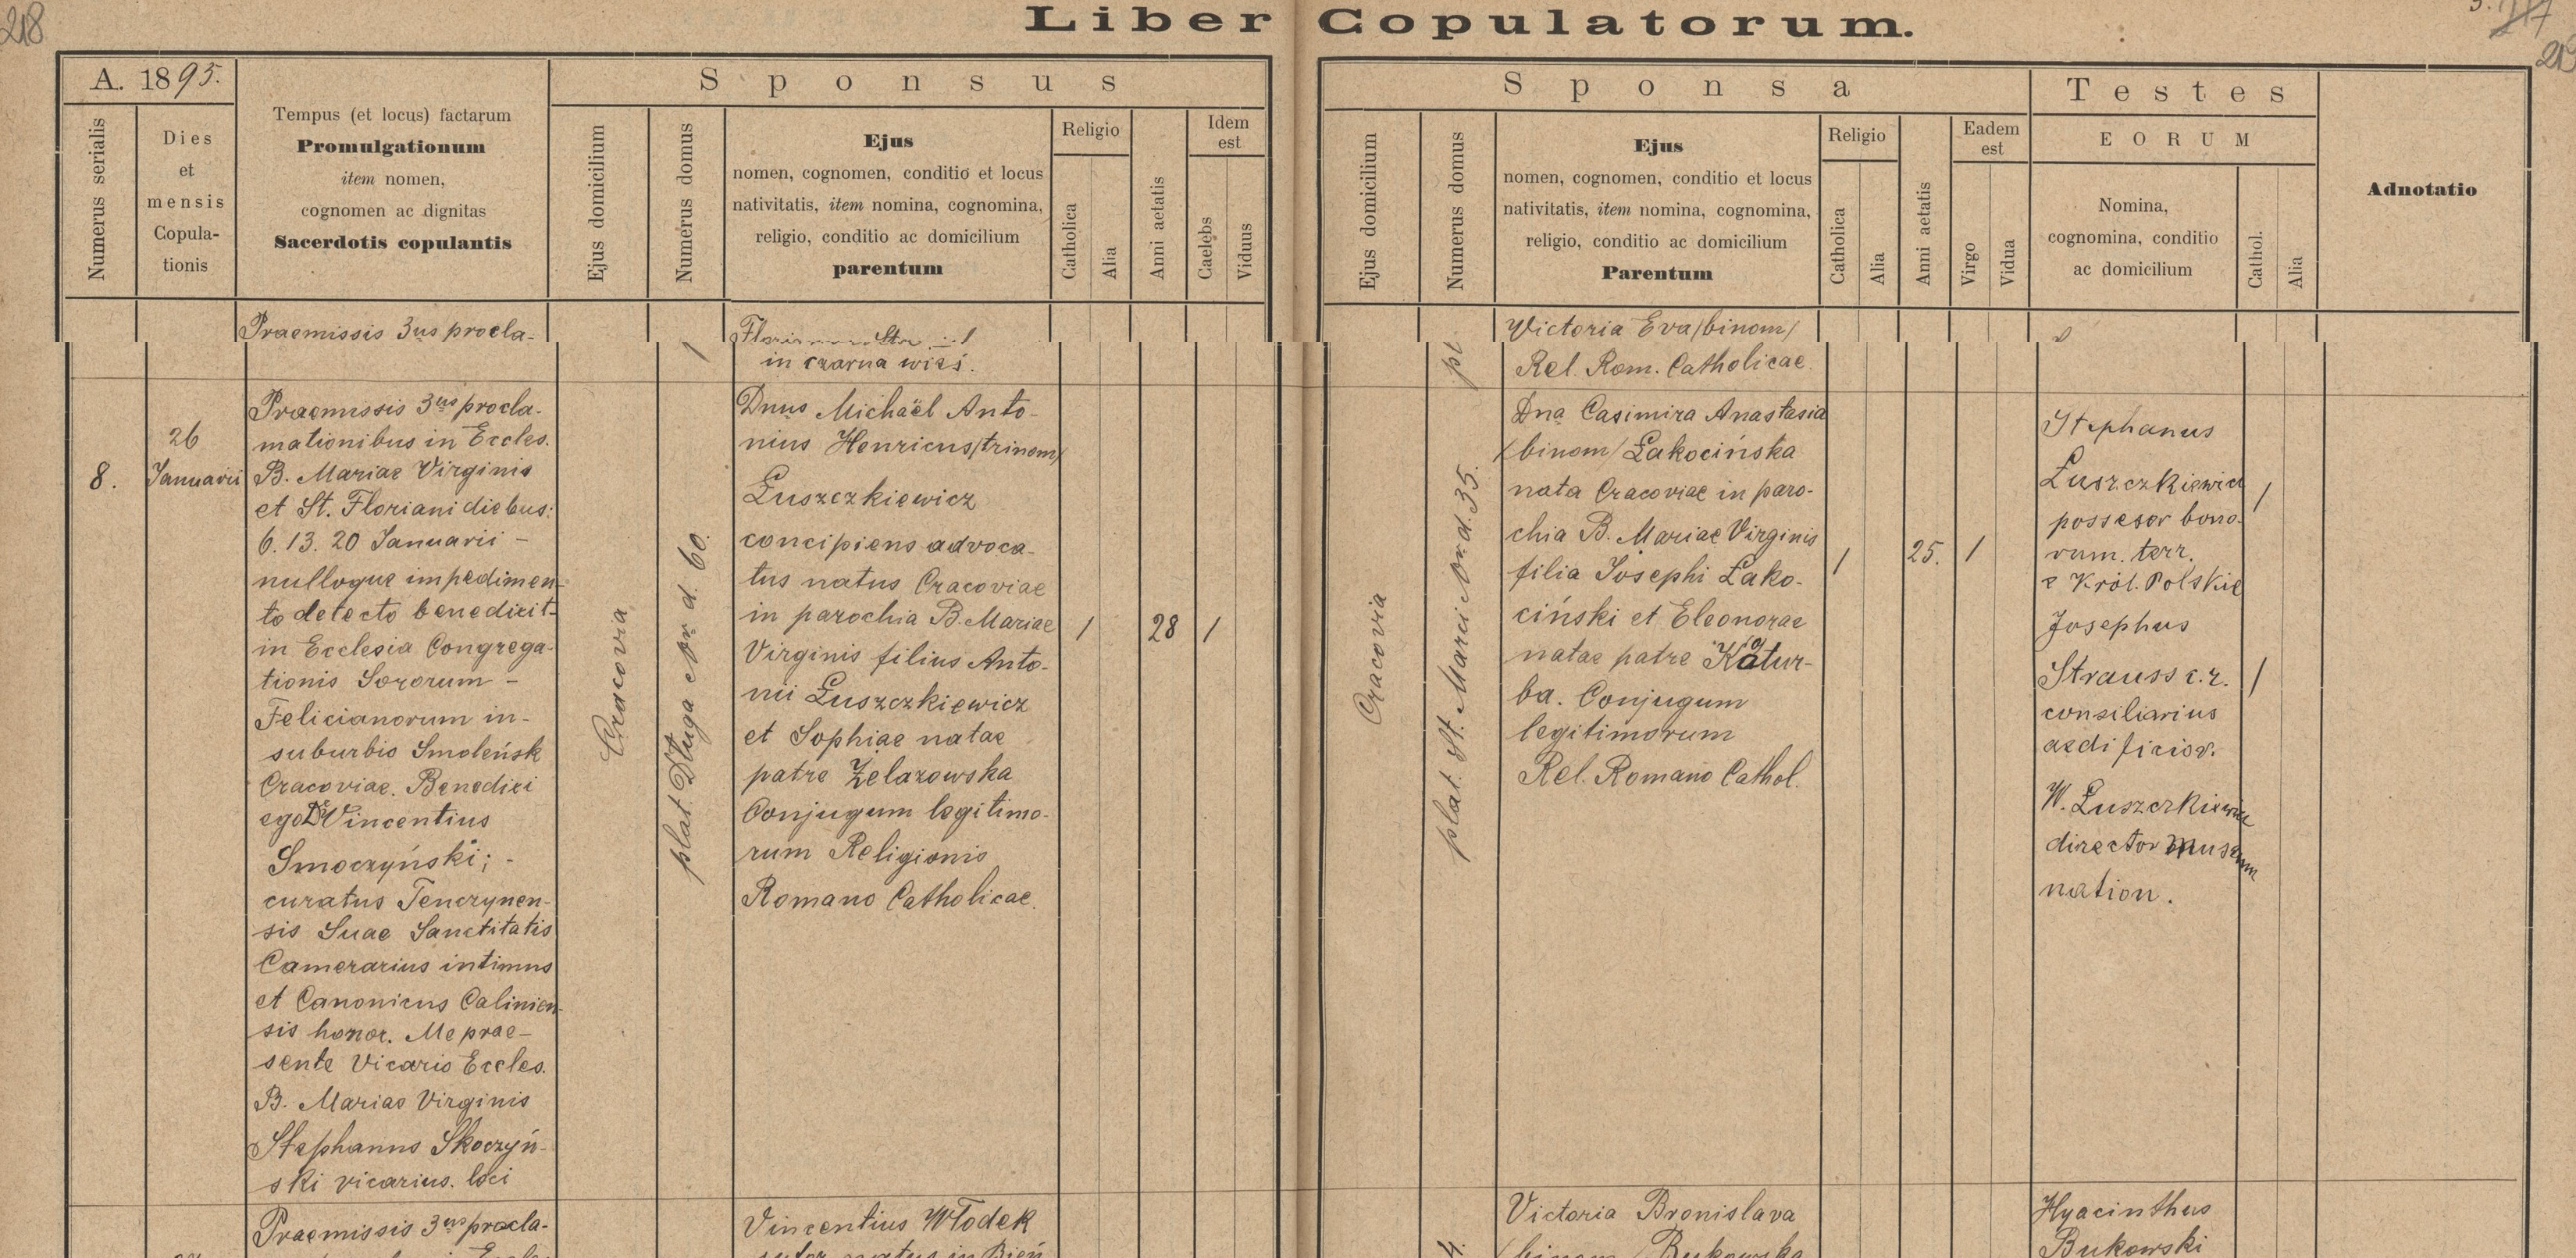 218
Liber Copulatorum.
A. 1895.
Numerus serialis
Dies
et
mensis
Copula-
tionis
Tempus (et locus) factarum
Promulgationum
item nomen,
cognomen ac dignitas
Sacerdotis copulantis
Sponsus
Ejus domicilium
Numerus domus
Ejus
nomen, cognomen, conditio et locus
nativitatis, item nomina, cognomina,
religio, conditio ac domicilium
parentum
Religio
Catholica
Alia
Anni aetatis
Idem
est
Caelebs
Viduus
Sponsa
Ejus domicilium
Numerus domus
Ejus
nomen, cognomen, conditio et locus
nativitatis, item nomina, cognomina,
religio, conditio ac domicilium
Parentum
Religio
Catholica
Alia
Anni aetatis
Eadem
est
Virgo
Vidua
Testes
EORUM
Nomina,
cognomina, conditio
ac domicilium
Cathol.
Alia
Adnotatio
Praemissis 3us procla-
in czarna wieś.
Victoria Eva /binom/
Rel. Rom. Catholicae.
8.
26
Januarii
Praemissis 3us procla-
mationibus in Eccles.
B. Mariae Virginis
et St. Floriani diebus:
6. 13. 20 Januarii -
nulloque impedimen-
to detecto benedixit
in Ecclesia Congrega-
tionis Sororum -
Felicianorum in-
suburbio Smoleńsk
Cracoviae. Benedixi
ego Dr Vincentius
Smoczyński; -
curatus Tenczynen-
sis Suae Sanctitatis
Camerarius intimus
et Canonicus Calinien-
sis honor. Me prae-
sente Vicario Eccles.
B. Marias Virginis
Stephanus Skoczyń-
ski vicarius. loci
Cracovia
plat. Długa Nr. d. 60.
Dnus Michaël Anto-
nius Henricus /trinom/
Łuszczkiewicz
concipiens advoca-
tus natus Cracoviae
in parochia B. Mariae
Virginis filius Anto-
nii Łuszczkiewicz
et Sophiae natae
patre Żelazowska
Conjugum legitimo-
rum Religionis
Romano Catholicae.
1
28
1
Cracovia
plat. St. Marci Nr. d. 35.
Dna Casimira Anastasia
/binom/ Łakocińska
nata Cracoviae in paro-
chia B. Mariae Virginis
filia Josephi Łako-
ciński et Eleonorae
natae patre Katur-
ba. Conjugum
legitimorum
Rel. Romano Cathol.
1
25.
1
Stephanus
Łuszczkiewicz
possesor bono-
rum. terr.
z Król. Polskie
1
Josephus
Strauss c.r.
consiliarius
aedificior.
1
W. Łuszczkiewicz
director museum
nation.
Praemissis 3us procla-
Vincentius Włodek
sutor natus in Bień
Victoria Bronislava
/binom/ Bukowska
Hyacinthus
Bukowski